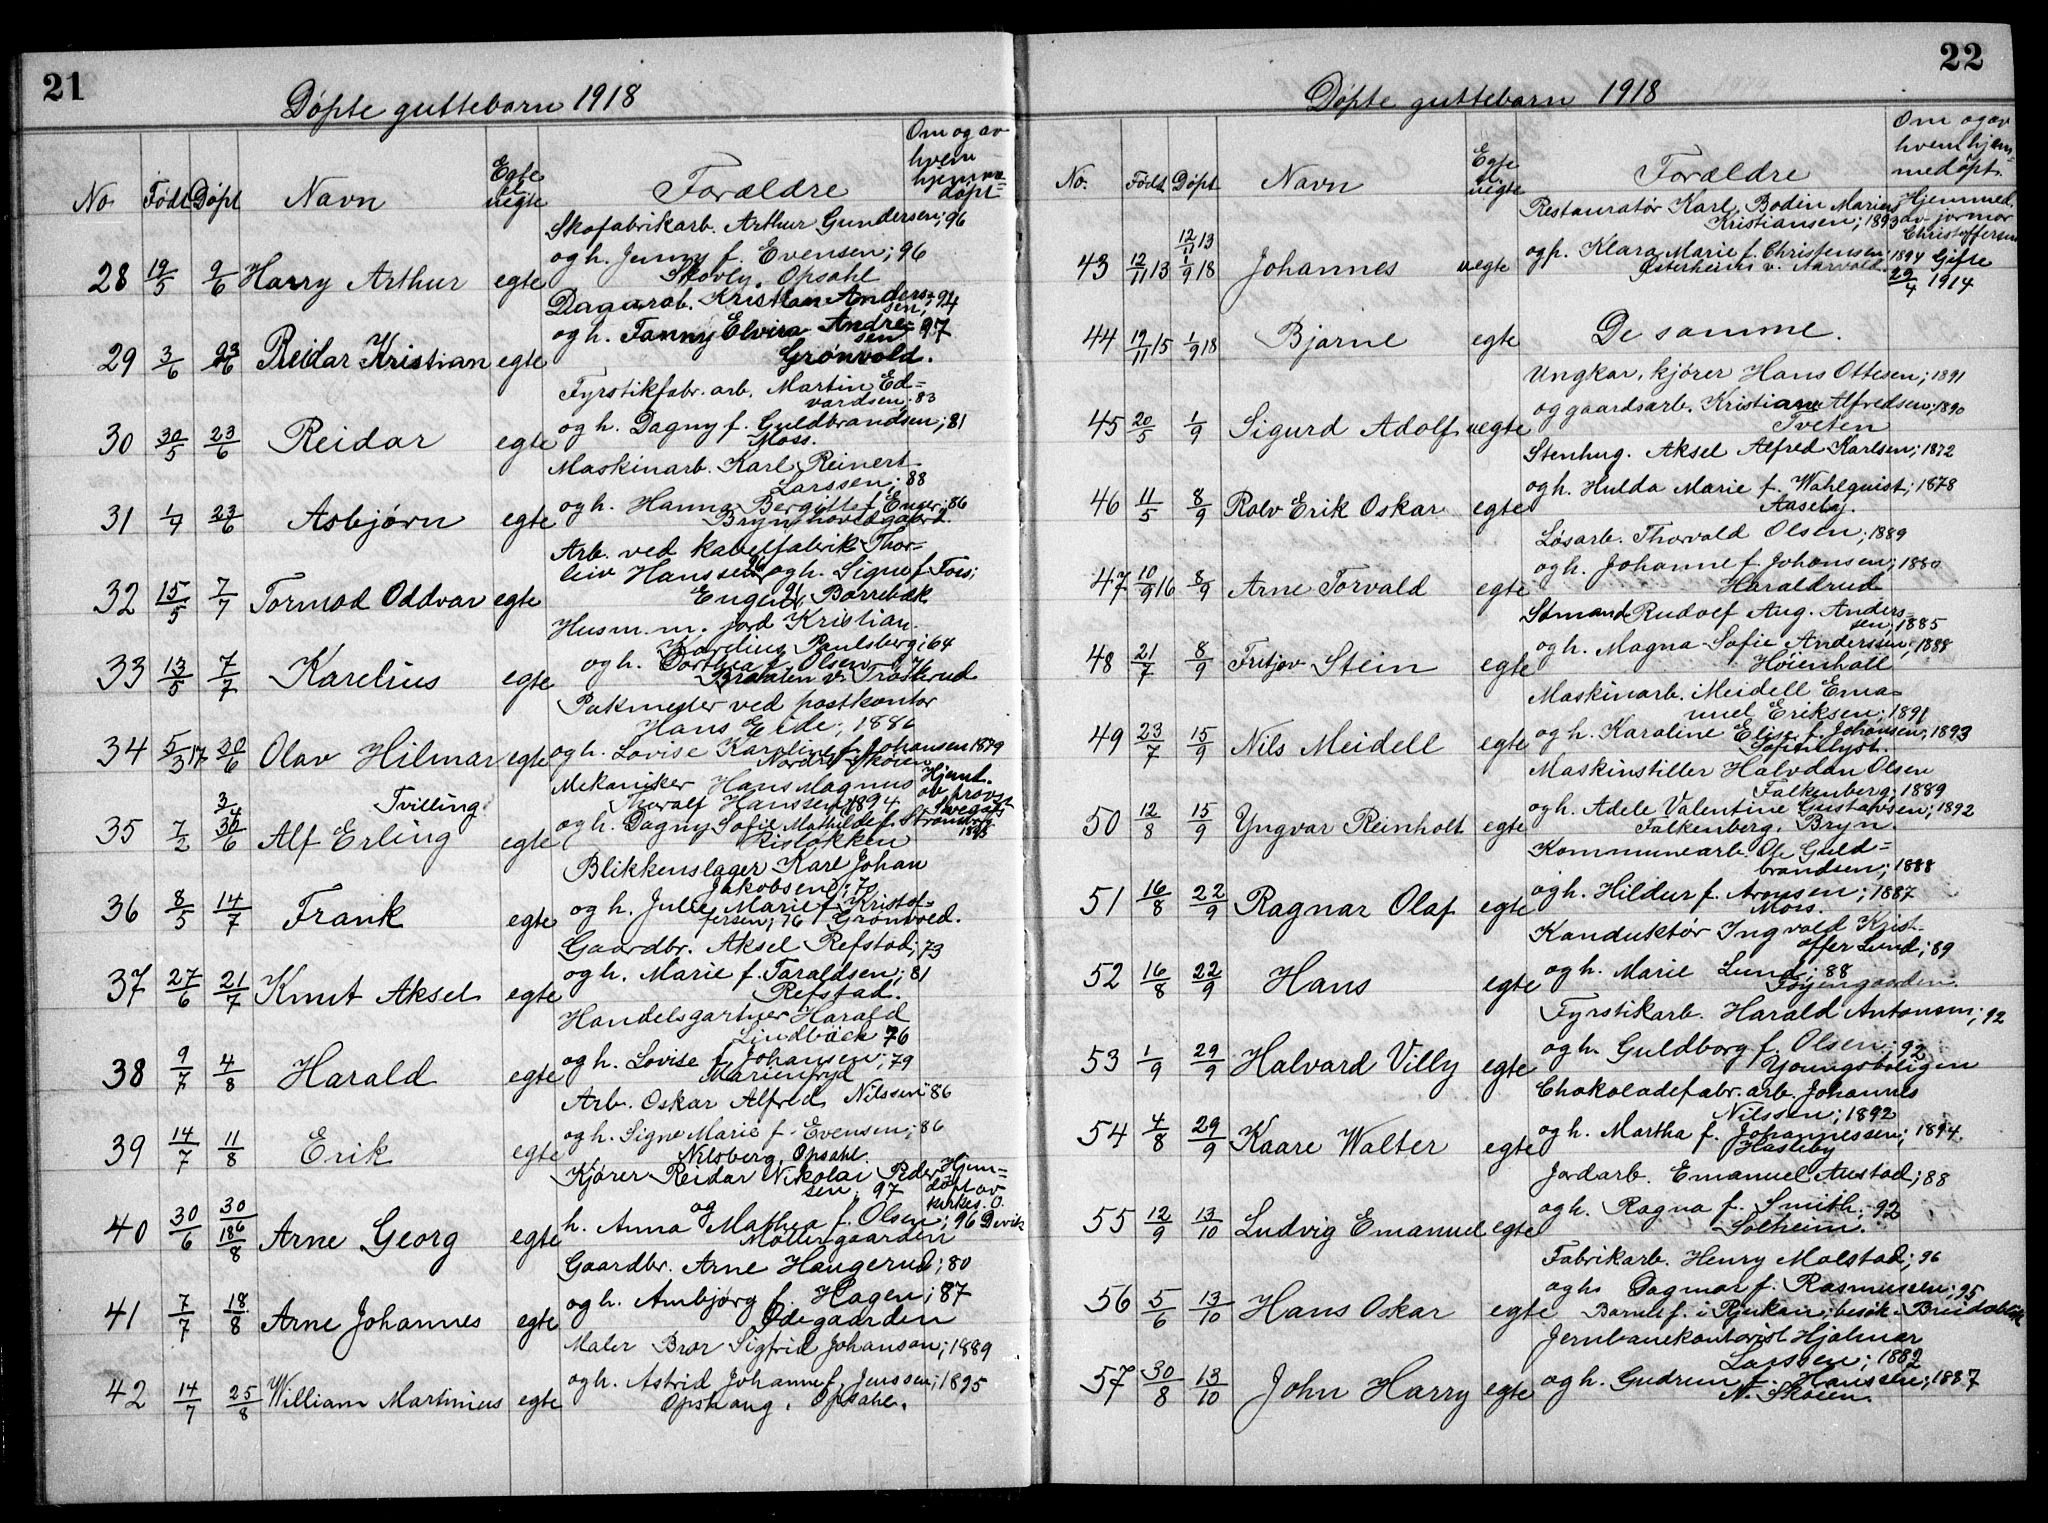 21
Døpte guttebarn 1918
No Født Døpt Navn Egte el. uegte Forældre Om og av hvem hjemmedøpt
Skofabrikarb. Arthur Gundersen; 96
og h. Jenny f. Evensen; 96
28 19/5 9/6 Harry Arthur egte Skovly. Opsahl
Dagarb. Kristian Anderssen; 94
og h. Fanny Elvira Andresen 97
29 3/6 23/6 Reidar Kristian egte Grønvold.
Fyrstikfabr. arb. Martin Ed=
vardsen; 83
og h. Dagny f. Guldbrandsen; 81
30 30/5 23/6 Reidar egte Moss.
Maskinarb. Karl Reinert
Larssen; 88
og h. Hanna Bergitte f. Enger; 86
31 1/4 23/6 Asbjørn egte
Arb. ved kabelfabrik Thor=
leiv Hanssen og h. Signe f. Foss;
32 15/5 7/7 Tormod Oddvar egte Enger Borrebæk
Husm. m. jord Kristian
Karelius Paulsberg; 64
og h. Dorthea f. Olsen 76
33 13/5 7/7 Karelius egte Braaten v. Trosterud
Pakmester ved postkontor
Hans Eide; 1886
34 5/3 17 30/6 Olav Hilmar egte og h. Lovise Karoline f. Johansen 1879
Nordre Skøien
Mekaniker Hans Magnus
Thoralf Hanssen 1894
Hjemt. av provst
3/4 Tvilling
35 7/2 30/6 Alf Erling egte og h. Dagny Sofie Mathilde f. Strømberg 1895
Risløkken
Blikkenslager Karl Johan
Jakobsen; 70
og h. Julie Marie f. Kristof=
36 8/5 14/7 Frank egte fersen; 76 Grønvold.
Gaardbr. Aksel Refstad; 73
og h. Marie f. Taraldsen; 81
37 27/6 21/7 Knut Aksel egte Refstad.
Handelsgartner Harald
Lindbäck 76
og h. Lovise f. Johansen; 79
38 9/7 4/8 Harald egte Marienfryd
Arb. Oskar Alfred Nilssen 86
og h. Signe Marie f. Evensen; 86
39 14/7 11/8 Erik egte Nilsberg. Opsahl.
Kjører Reidar Nikolai Peder
sen, 97
Hjem=
døpt av
kirkes. O.
Devik
og
h. Anna Mathea f. Olsen; 96
40 30/6 30/6 18/8 Arne Georg egte Møllergaarden
Gaardbr. Arne Haugerud; 80
og h. Ambjørg f. Hagen; 87
41 7/7 18/8 Arne Johannes egte Ødegaarden
Maler Bror Sigfrid Johanson; 1889
og h. Astrid Johanne f. Jenssen; 1895
42 14/7 25/8 William Martinius egte Opshaug. Opsahl.
22
Døpte guttebarn 1918
No. Født Døpt Navn Egte el. uegte Forældre Om og av hvem hjemmedøpt.
Restauratør Karl Bodin Marius
Kristiansen; 1893
Hjemmed.
av jormor
Christoffersen
og p. Klara Marie f. Christensen 1894
43 12/11 13 12/11 13 1/9 18 Johannes uegte Østerheim v. Aarvold.
Gifte
29/4 1914
44 19/11 15 1/9 18 Bjarne egte De samme.
Ungkar, kjører Hans Ottesen; 1891
og gaardsarb. Kristiane Alfredsen; 1890
45 20/5 1/9 Sigurd Adolf uegte Tveten
Stenhug. Aksel Alfred Karlsen; 1872
og h. Hulda Marie f. Wahlquist; 1878
46 11/5 8/9 Rolv Erik Oskar egte Aaseby.
Løsarb. Thorvald Olsen; 1889
og h. Johanne f. Johansen; 1880
47 10/9 16 8/9 Arne Torvald egte Haraldrud
Rudolf Aug. Anders=
sen; 1885
og h. Magna Sofie Anderssen; 1888
48 21/7 8/9 Fritjov Stein egte Høienhall
Maskinarb. Meidell Ema=
nuel Eriksen; 1891
og h. Karoline Elise f. Johansen; 1893
49 23/7 15/9 Nils Meidell egte Sofienlyst.
Maskinstiller Halvdan Olsen
Falkenberg; 1889
og h. Adele Valentine Gustavsen; 1892
50 12/8 15/9 Yngvar Reinholt egte Falkenberg. Bryn.
Kommunearb. Ole Guld=
brandsen; 1888
og h. Hildur f. Aronsen; 1887
51 16/8 22/9 Ragnar Olaf egte Moss.
Konduktør Ingvald Krist
offer Lund; 89
og h. Marie Lund; 88
52 16/8 22/9 Hans egte Tøyengaarden.
Fyrstikarb. Harald Antonsen; 92
og h. Guldborg f. Olsen; 92
53 1/9 29/9 Halvard Villy egte Youngsboligen
Chokoladefabr. arb. Johannes
Nilssen; 1892
og h. Martha f. Johannessen; 1894
54 4/8 29/9 Kaare Walter egte Hasleby
Jordarb. Emanuel Austad; 88
og h. Ragna f. Smith; 92
55 12/9 13/10 Ludvig Emanuel egte Solheim.
Fabrikarb. Henry Molstad; 96
og h. Dagmar f. Rasmussen; 95
56 5/6 13/10 Hans Oskar egte Barnet f. i Rjukan; besøk.
Jernbanekontorist Hjalmar
Larssen; 1882
og h. Gudrun f. Hanssen; 1887
57 30/8 13/10 John Harry egte N. Skøien.